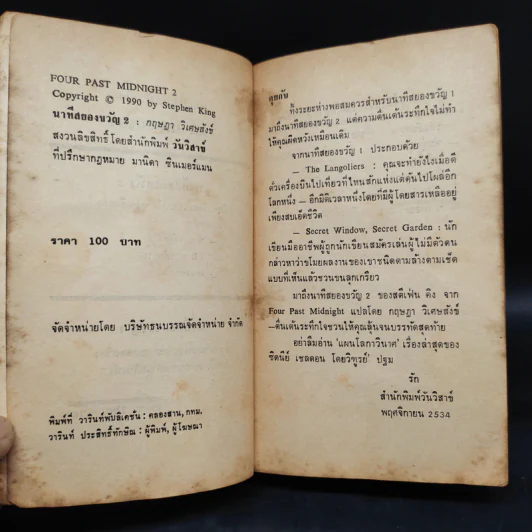 FOUR PAST MIDNIGHT 2
Copyright © 1990 by Stephen King
นาทีสยองขวัญ 2 : กฤษฎา วิเศษสังข์
สงวนลิขสิทธิ์ โดยสำนักพิมพ์ วันวิสาข์
ที่ปรึกษากฎหมาย มานิดา ซินเมอร์แมน
ราคา 100 บาท
จัดจำหน่ายโดย บริษัทธนบรรณจัดจำหน่าย จำกัด
พิมพ์ที่ วารินท์พับลิเคชั่น : คลองสาน, กทม.
วารินท์ ประสิทธิ์ทักษิณ : ผู้พิมพ์, ผู้โฆษณา
คุยกัน
ทิ้งระยะห่างพอสมควรสำหรับนาทีสยองขวัญ 1
มาถึงนาทีสยองขวัญ 2 แต่ความตื่นเต้นระทึกใจไม่ทำ
ให้คุณผิดหวังเหมือนเดิม
จากนาทีสยองขวัญ 1 ประกอบด้วย
— The Langoliers : คุณจะทำยังไงเมื่อตี
ตั๋วเครื่องบินไปเที่ยวที่ไหนสักแห่งแต่ดันไปโผล่อีก
โลกหนึ่ง — อีกมิติเวลาหนึ่งโดยที่มีผู้โดยสารเหลืออยู่
เพียงสิบเอ็ดชีวิต
— Secret Window, Secret Garden : นัก
เขียนมืออาชีพผู้ถูกนักเขียนสมัครเล่นผู้ไม่มีตัวตน
กล่าวหาว่าขโมยผลงานของเขาชนิดตามล้างตามเช็ด
แบบที่เห็นแล้วชวนขนลุกเกรียว
มาถึงนาทีสยองขวัญ 2 ของสตีเฟ่น คิง จาก
Four Past Midnight แปลโดย กฤษฎา วิเศษสังข์
—ตื่นเต้นระทึกใจชวนให้คุณลุ้นจนบรรทัดสุดท้าย
อย่าลืมอ่าน 'แผนโลกาวินาศ' เรื่องล่าสุดของ
ซิดนีย์ เชลดอน โดยวิฑูรย์ ปฐม
รัก
สำนักพิมพ์วันวิสาข์
พฤศจิกายน 2534